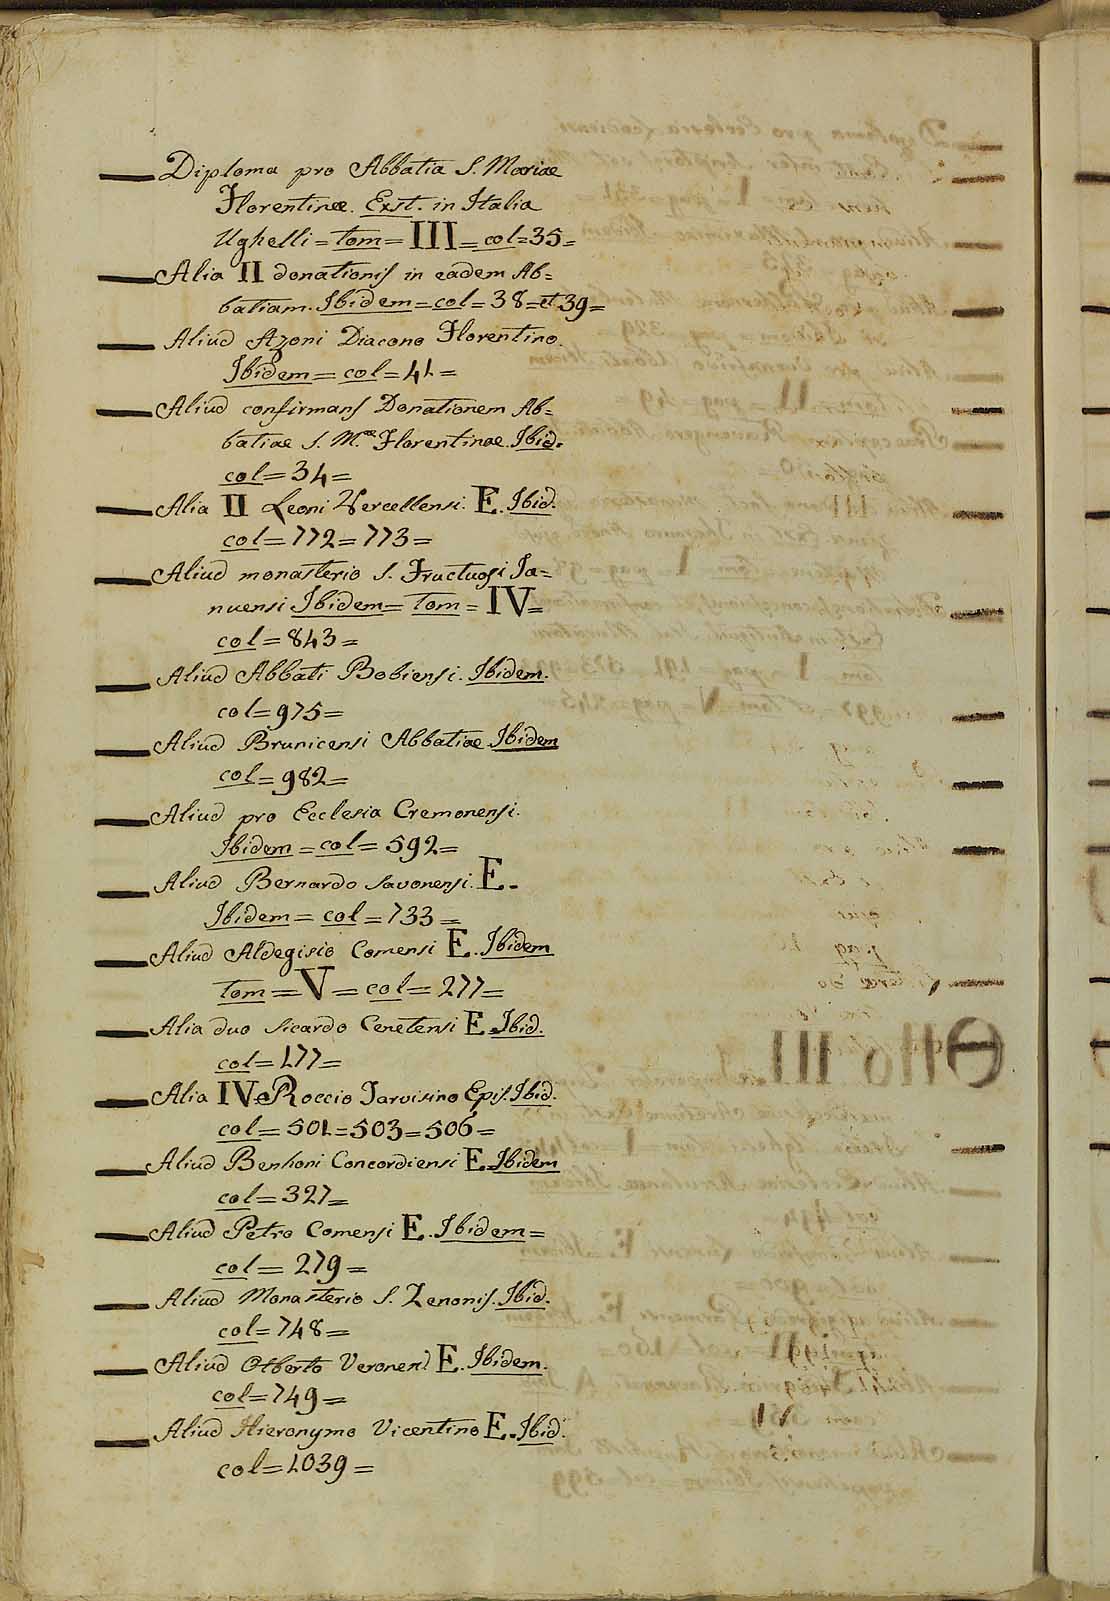 Diploma pro Abbatia S. Mariae
Florentinae. Exst. in Italia
Ughelli = tom = III = col = 35 =
Alia II donationis in eadem Ab=
batiam. Ibidem = col = 38 = et 39 =
Aliud Azoni Diacono Florentino.
Ibidem = col = 41 =
Aliud confirmans Donationem Ab=
batiae S. M.ae Florentinae. Ibid.
col = 34 =
Alia II Leoni Vercellensi. E. Ibid.
col = 772 = 773 =
Aliud monasterio S. Fructuosi Ja=
nuensi Ibidem = tom = IV =
col = 843 =
Aliud Abbati Bobiensi. Ibidem.
col = 975 =
Aliud Brunicensi Abbatiae Ibidem
col = 982 =
Aliud pro Ecclesia Cremonensi.
Ibidem = col = 592 =
Aliud Bernardo Savonensi. E.
Ibidem = col = 733 =
Aliud Aldegisio Comensi E. Ibidem
tom = V = col = 277 =
Alia duo Sicardo Cenetensi E. Ibid.
col = 177 =
Alia IV Roccio Tarvisino Epis. Ibid.
col = 501 = 503 = 506 =
Aliud Benhoni Concordiensi E. Ibidem
col = 327 =
Aliud Petro Comensi E. Ibidem =
col = 279 =
Aliud Monasterio S. Zenonis. Ibid.
col = 748 =
Aliud Otberto E. Ibidem.
col = 749 =
Aliud Hieronymo Vicentino E. Ibid.
col = 1039 =